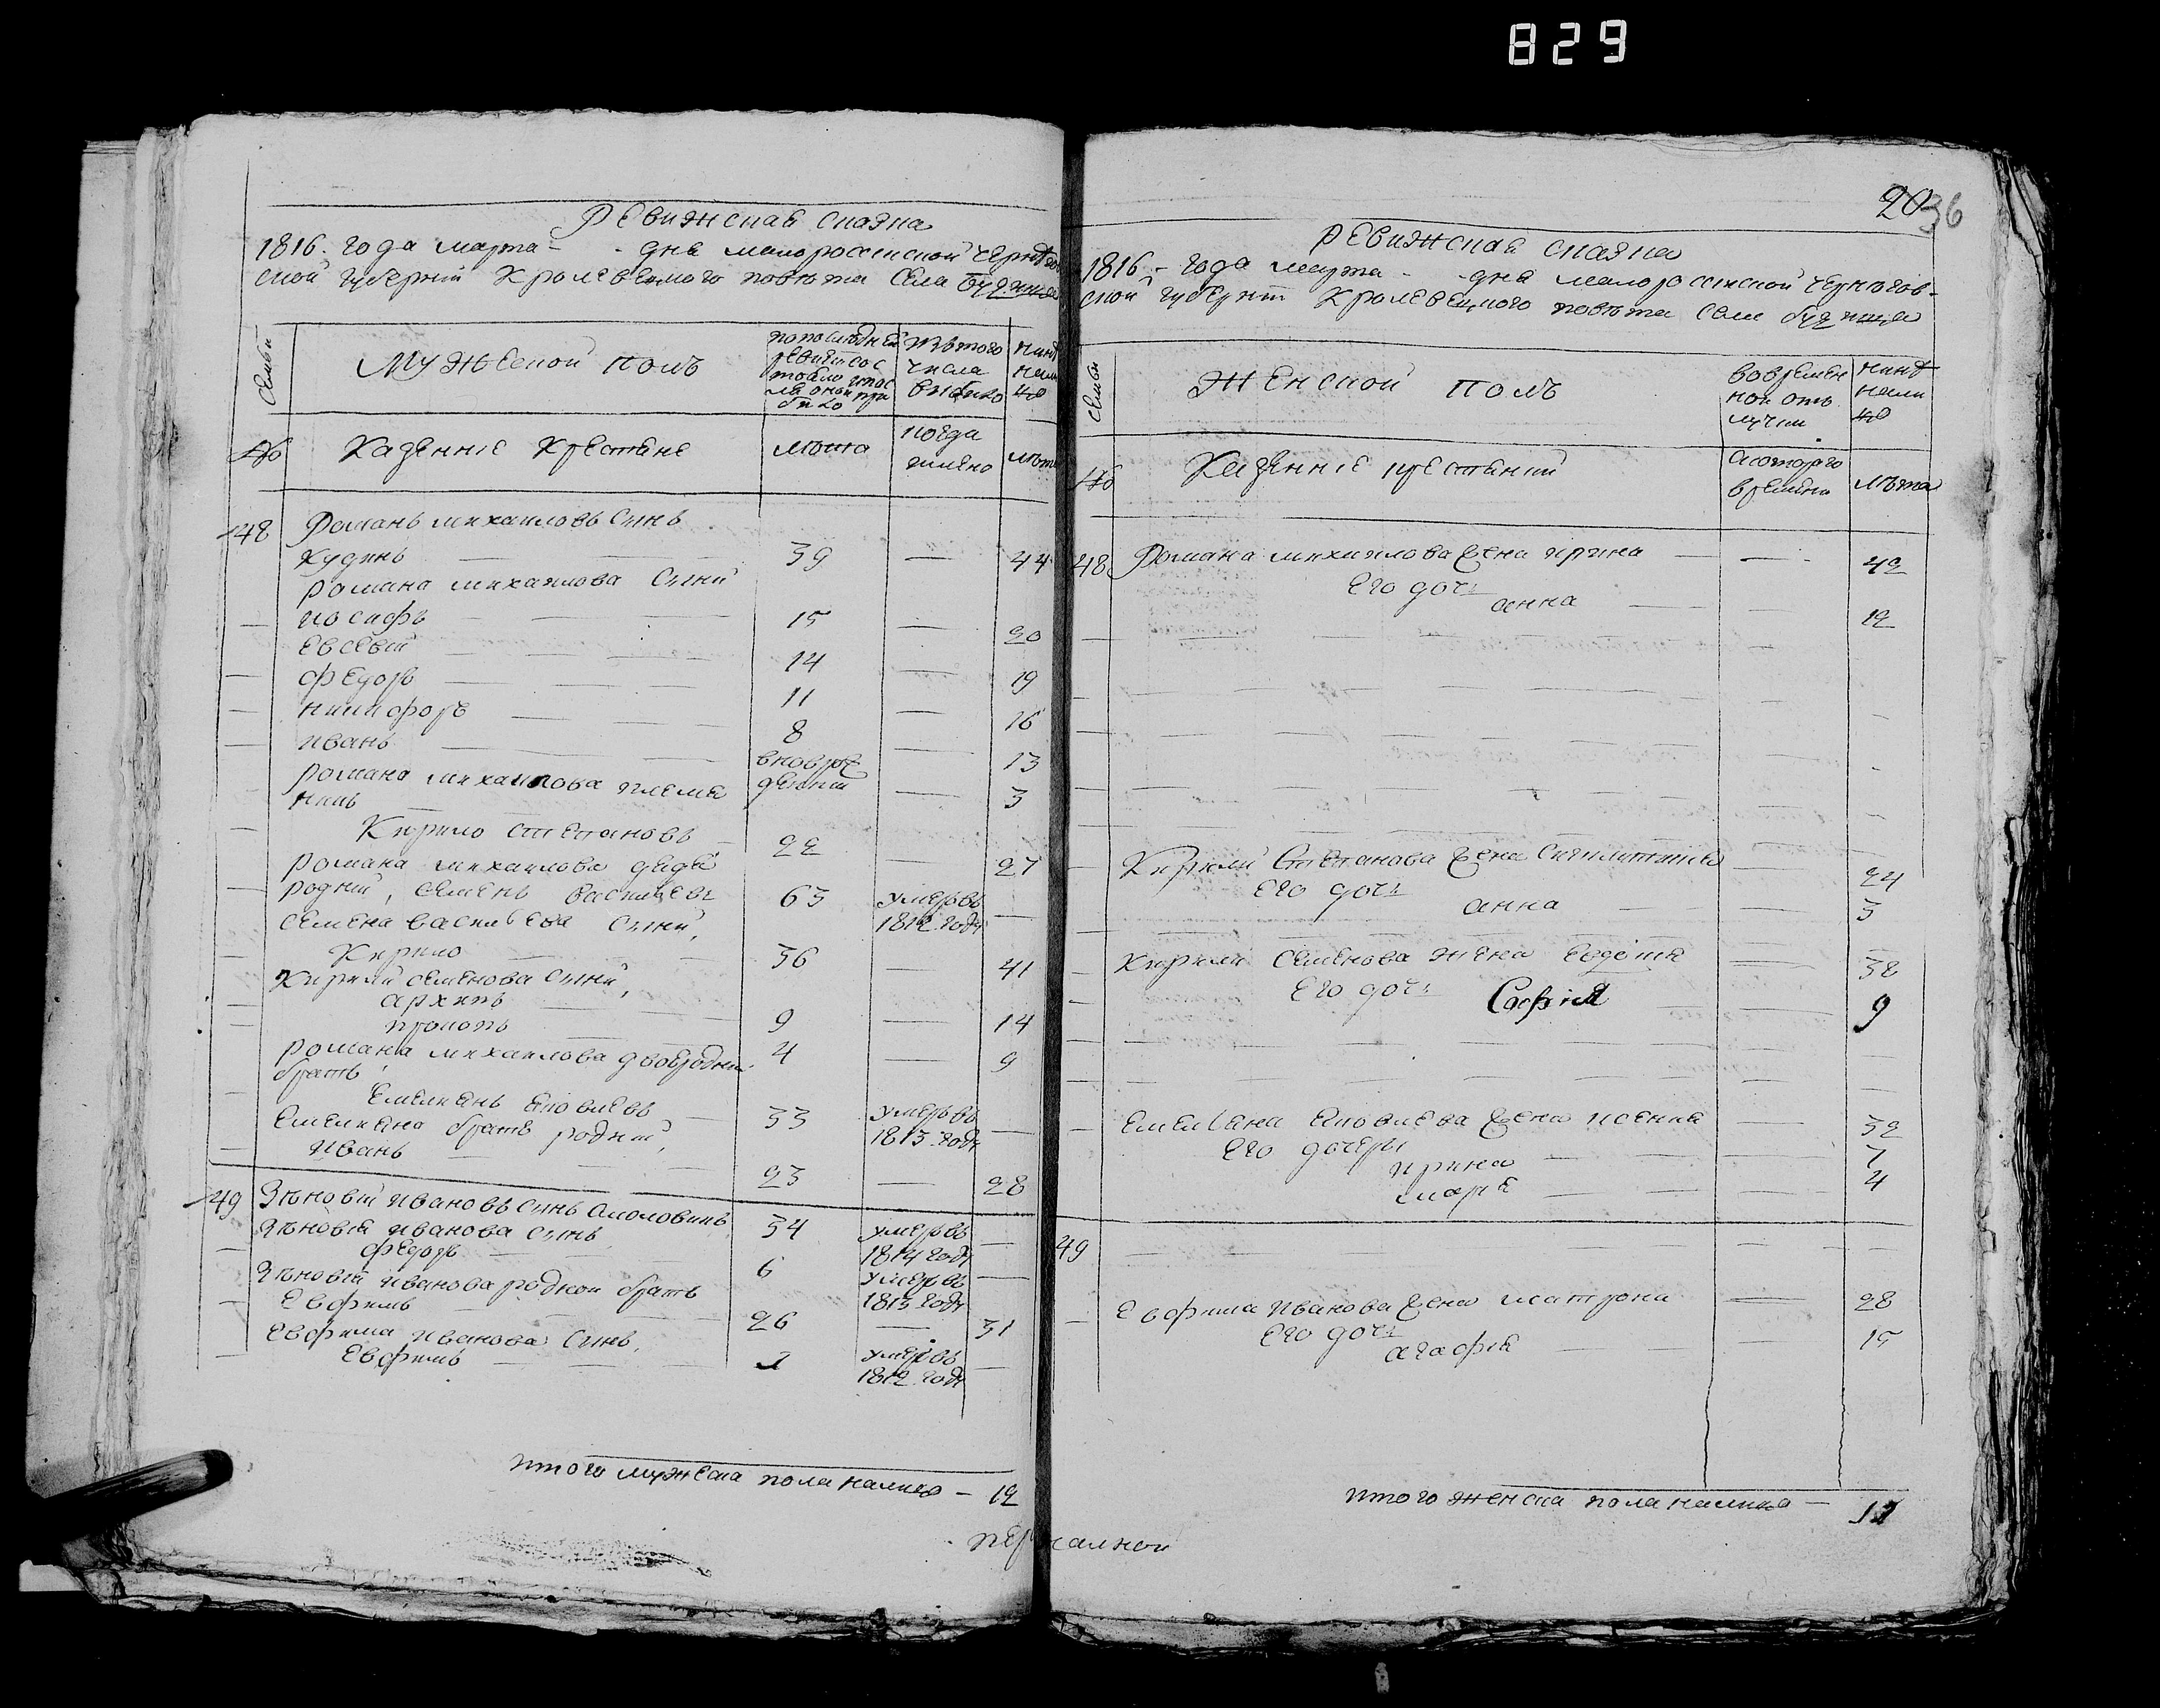 829
Ревижская сказка
1816. года марта - - дня малоросинской Чернѣгов
ской губернїи Кролевецкого повѣта села Будищ
семьи
Мужеской полъ
по послѣдней
ревизїи сос
тояло и пос
ле оной при
было
Изъ того
числа
выбыло
нинѣ
на ли
цо
№
Казеннїе крестяне
лѣта
когда
имено
лѣта
48
Романъ михаиловъ синъ
Кудинъ 39 — 44
Романа михаилова сини
иосифъ 15 — 20
Евсевїй 14 — 19
Федоръ 11 — 16
никифоръ 8 — 13
иванъ вновро
жденїй — 3
Романа михаилова племя
никъ
Кирило степановъ 22 — 27
Романа михаилова дядя
родний, семенъ василиевъ 63 умеръвъ —
1812 годѣ
семена василиева сини,
Кирило 36 — 41
Кирили семенова сини,
архипъ 9 — 14
прокопъ 4 — 9
Романа михаилова двоюродний
братъ,
Емелиянъ яковлевъ 33 умеръвъ —
1813 годѣ
Емелияна братъ роднїй,
иванъ 23 — 28
49 Зѣновїй ивановъ синъ 34 умеръвъ —
1814 годѣ
Зѣновїя иванова синъ
федоръ 6 умеръвъ —
1813 годѣ
Зѣновїй иванова родной братъ
Евфимъ 26 — 31
Евфима иванова синъ,
Евфимъ умеръвъ —
1812 годѣ
итого мужеска пола налицо — 12
20 36
Ревижская сказка
1816 - года марта - - дня малоросинской Чернѣгов-
ской губернїи Кролевецкого повѣта села будища
семьи
Женской полъ
во времен
ной отъ
лучки
нинѣ
на ли
цо
№
Казеннїе крестянки
с которого
времени
лѣта
48 Романа михаилова жена ирина — 42
Его дочь
анна — 12
Кирили Степанова жена — 24
Его дочь
анна — 3
Кирили семенова жена Евдокия — 32
Его дочь
Софїя — 9
Емелияна яковлева жена ксения — 32
Его дочери
ирина — 7
марїя — 4
49
Евфима иванова жена матрона — 28
Его дочь
агафїя — 15
итого женска пола налицо — 11